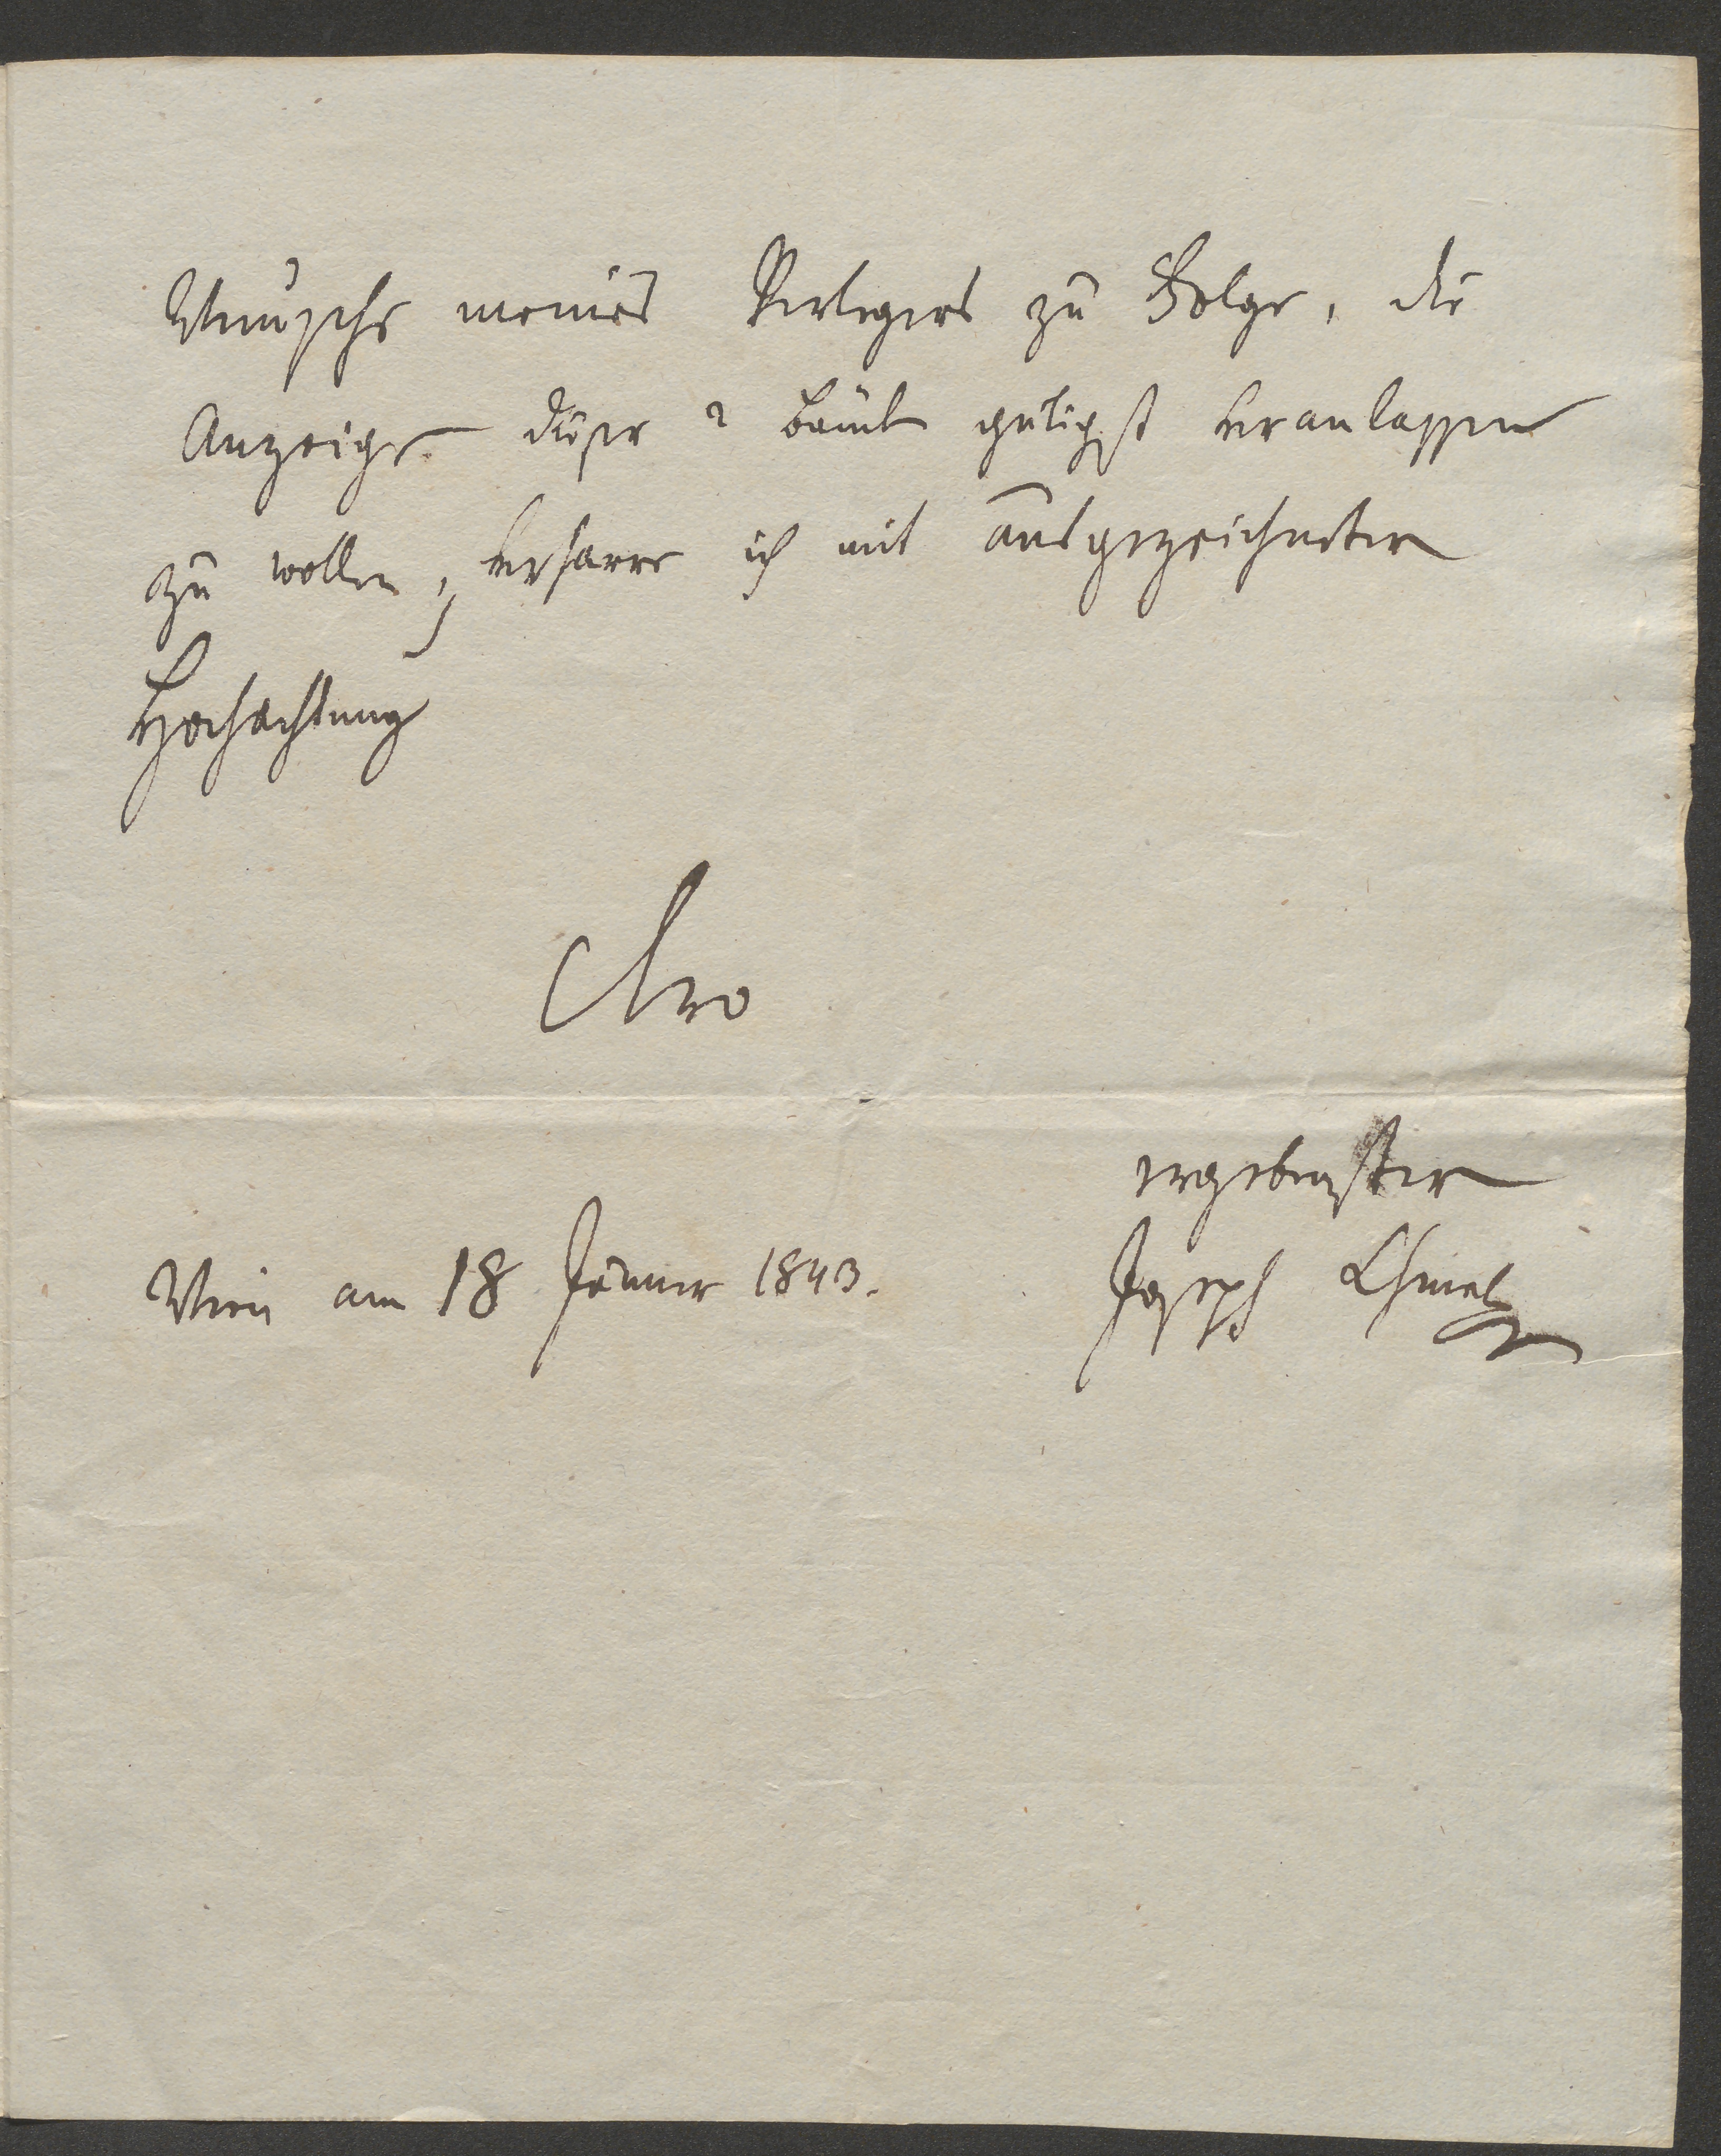 Wunsche meines Verlegers zu Folge, die
Anzeige dieser 2 Bände gütigst veranlassen
zu wollen, verharre ich mit ausgezeichneter
Hochachtung
Ihro
ergebenster
Wien am 18 Jänner 1843. Joseph Chmel